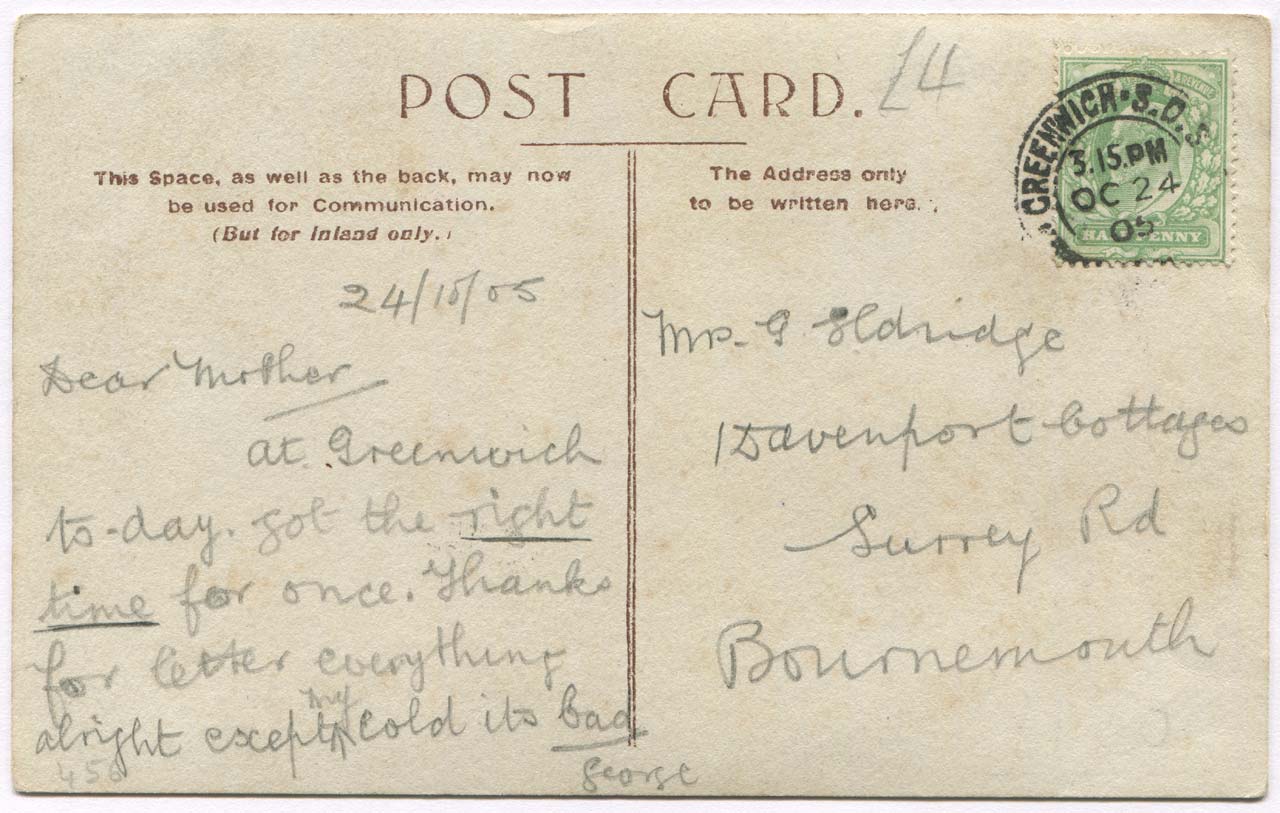 POST CARD.
£4
This Space, as well as the back, may now
be used for Communication.
(But for Inland only.)
The Address only
to be written here.
GREENWICH · S.O. S
3.15.PM
OC 24
05
HALFPENNY
24/10/05
Dear Mother
at Greenwich
to-day. got the right
time for once. Thanks
for letter everything
alright except my cold its bad
George
456
Mrs. G Eldridge
1 Davenport Cottages
Surrey Rd
Bournemouth